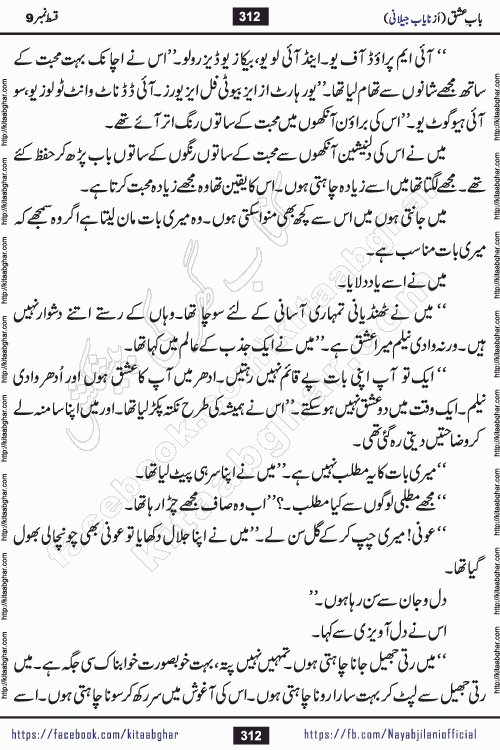 باب عشق (از نایاب جیلانی) 312 قسط نمبر 9
‘‘ آئی ایم پراؤڈ آف یو۔ اینڈ آئی لو یو، بیکازیو ڈیزرو لو۔’’ اس نے اچانک بہت محبت کے
ساتھ مجھے شانوں سے تھام لیا تھا۔‘‘ یور ہارٹ از ایز بیوٹی فل ایز یورز۔ آئی ڈڈ ناٹ وانٹ ٹو لوز یو، سو
آئی ہیو گوٹ یو۔’’ اس کی براؤن آنکھوں میں محبت کے ساتوں رنگ اتر آئے تھے۔
میں نے اس کی دلنشین آنکھوں سے محبت کے ساتوں رنگوں کے ساتوں باب پڑھ کر حفظ کئے
تھے۔ مجھے لگتا تھا میں اسے زیادہ چاہتی ہوں۔ اس کا یقین تھا وہ مجھے زیادہ محبت کرتا ہے۔
میں جانتی ہوں میں اس سے کچھ بھی منوا سکتی ہوں۔ وہ میری بات مان لیتا ہے اگر وہ سمجھے کہ
میری بات مناسب ہے۔
میں نے اسے یاد دلایا۔
‘‘ میں نے ٹھنڈیانی تمہاری آسانی کے لئے سوچا تھا۔ وہاں کے رستے اتنے دشوار نہیں
ہیں۔ ورنہ وادی نیلم میرا عشق ہے۔’’ میں نے ایک جذب کے عالم میں کہا تھا۔
‘‘ ایک تو آپ اپنی بات پے قائم نہیں رہتیں۔ ادھر میں آپ کا عشق ہوں اور اُدھر وادی
نیلم۔ ایک وقت میں دو عشق نہیں ہو سکتے۔’’ اس نے ہمیشہ کی طرح نکتہ پکڑ لیا تھا۔ اور میں اپنا سا منہ لے
کر وضاحتیں دیتی رہ گئی تھی۔
‘‘ میری بات کا یہ مطلب نہیں ہے۔’’ میں نے اپنا سر ہی پیٹ لیا تھا۔
‘‘ مجھے مطلبی لوگوں سے کیا مطلب۔؟’’ اب وہ صاف مجھے چڑا رہا تھا۔
‘‘ عونی! میری چپ کر کے گل سن لے۔’’ میں نے اپنا جلال دکھایا تو عونی بھی چونچالی بھول
گیا تھا۔
دل و جان سے سن رہا ہوں۔’’
اس نے دل آویزی سے کہا۔
‘‘ میں رتی جھیل جانا چاہتی ہوں۔ تمہیں نہیں پتہ، بہت خوبصورت خوابناک سی جگہ ہے۔ میں
رتی جھیل سے لپٹ کر بہت سارا رونا چاہتی ہوں۔ اس کی آغوش میں سر رکھ کر سونا چاہتی ہوں۔ اسے
https://facebook.com/kitaabghar 312 https://fb.com/Nayabjilaniofficial
http://kitaabghar.com